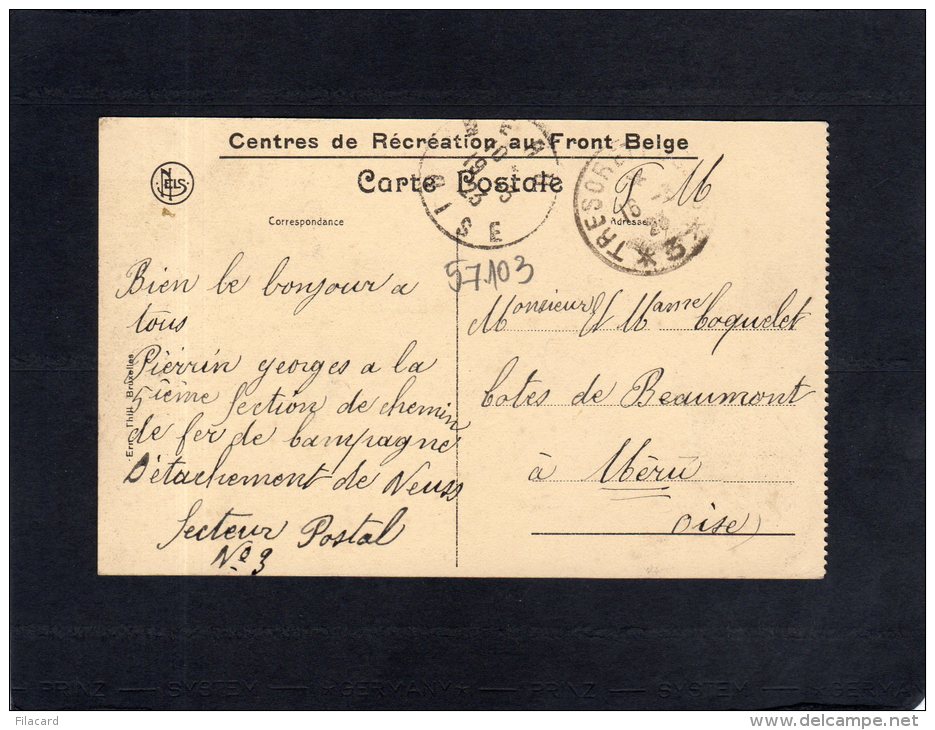 Centres de Récréation au Front Belge
Carte Postale
NELS
Correspondance
Adresse
F M
OISE
19
23
TRESOR
* 3 *
57103
Bien le bonjour a
tous
Pierrin georges a la
5ieme Section de chemin
de fer de Campagne
Détachement de Neuss
Secteur Postal
No 3
Ern. Thill, Bruxelles
Monsieur & Mame Coquelet
Cotes de Beaumont
à Méru
Oise
PRINZ — SYSTEM — * GERMANY * — PRINZ — SYSTEM — * GERMA
Filacard
delcampe.net